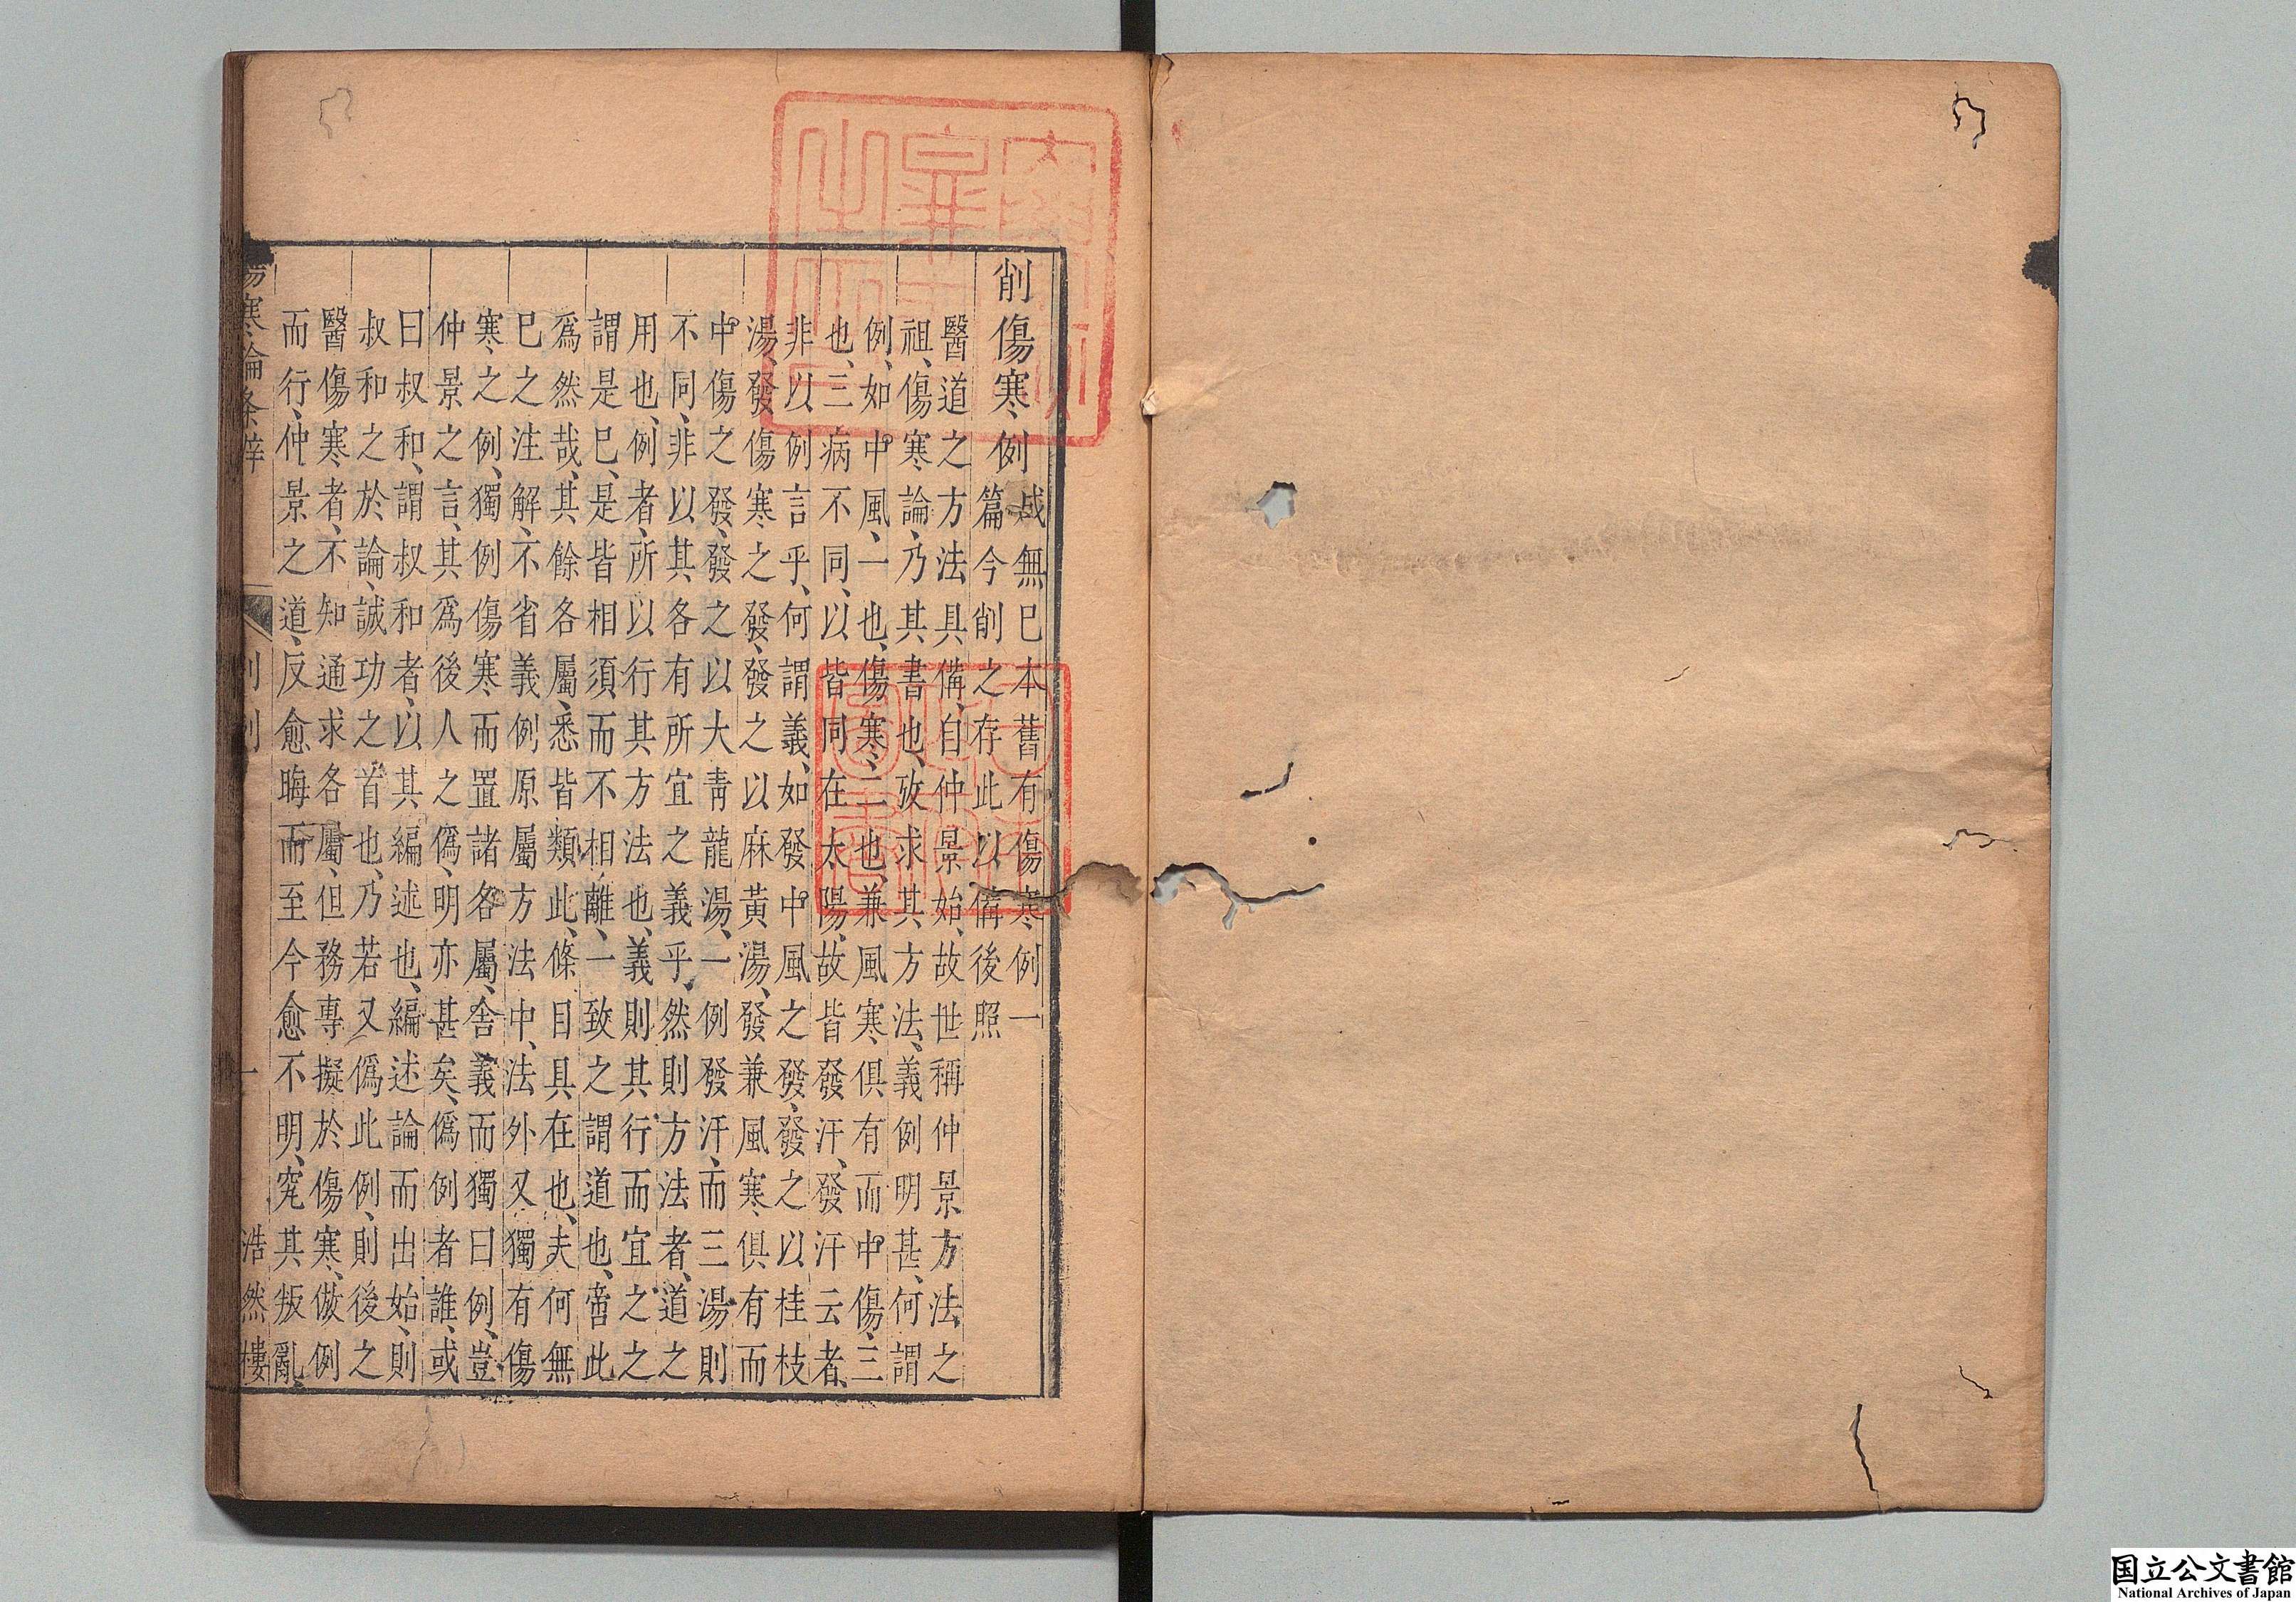 削傷寒例 成無已本舊有傷寒例一
篇今削之存此以備後照
醫道之方法具備、自仲景始、故世稱仲景方法之
祖、傷寒論、乃其書也、攷求其方法、義例明甚、何謂
例、如中風、一也、傷寒、二也、兼風寒俱有而中傷、三
也、三病不同、以皆同在太陽、故皆發汗、發汗云者、
非以例言乎、何謂義、如發中風之發、發之以桂枝
湯、發傷寒之發、發之以麻黃湯、發兼風寒俱有而
中傷之發、發之以大青龍湯、一例發汗、而三湯則
不同、非以其各有所宜之義乎、然則方法者、道之
用也、例者、所以行其方法也、義則其行而宜之之
謂是已、是皆相須而不相離、一致之謂道也、啻此
爲然哉、其餘各屬、悉皆類此、條目具在也、夫何無
已之注解、不省義例原屬方法中、法外又獨有傷
寒之例、獨例傷寒而置諸各屬、舍義而獨曰例、豈
仲景之言、其爲後人之偽、明亦甚矣、偽例者誰、或
曰叔和、謂叔和者、以其編述也、編述論而出始、則
叔和之於論、誠功之首也、乃若又偽此例、則後之
醫傷寒者、不知通求各屬、但務專擬於傷寒、倣例
而行、仲景之道、反愈晦而至今愈不明、究其叛亂、
傷寒論条辨 削例 一 浩然樓
国立公文書館
National Archives of Japan